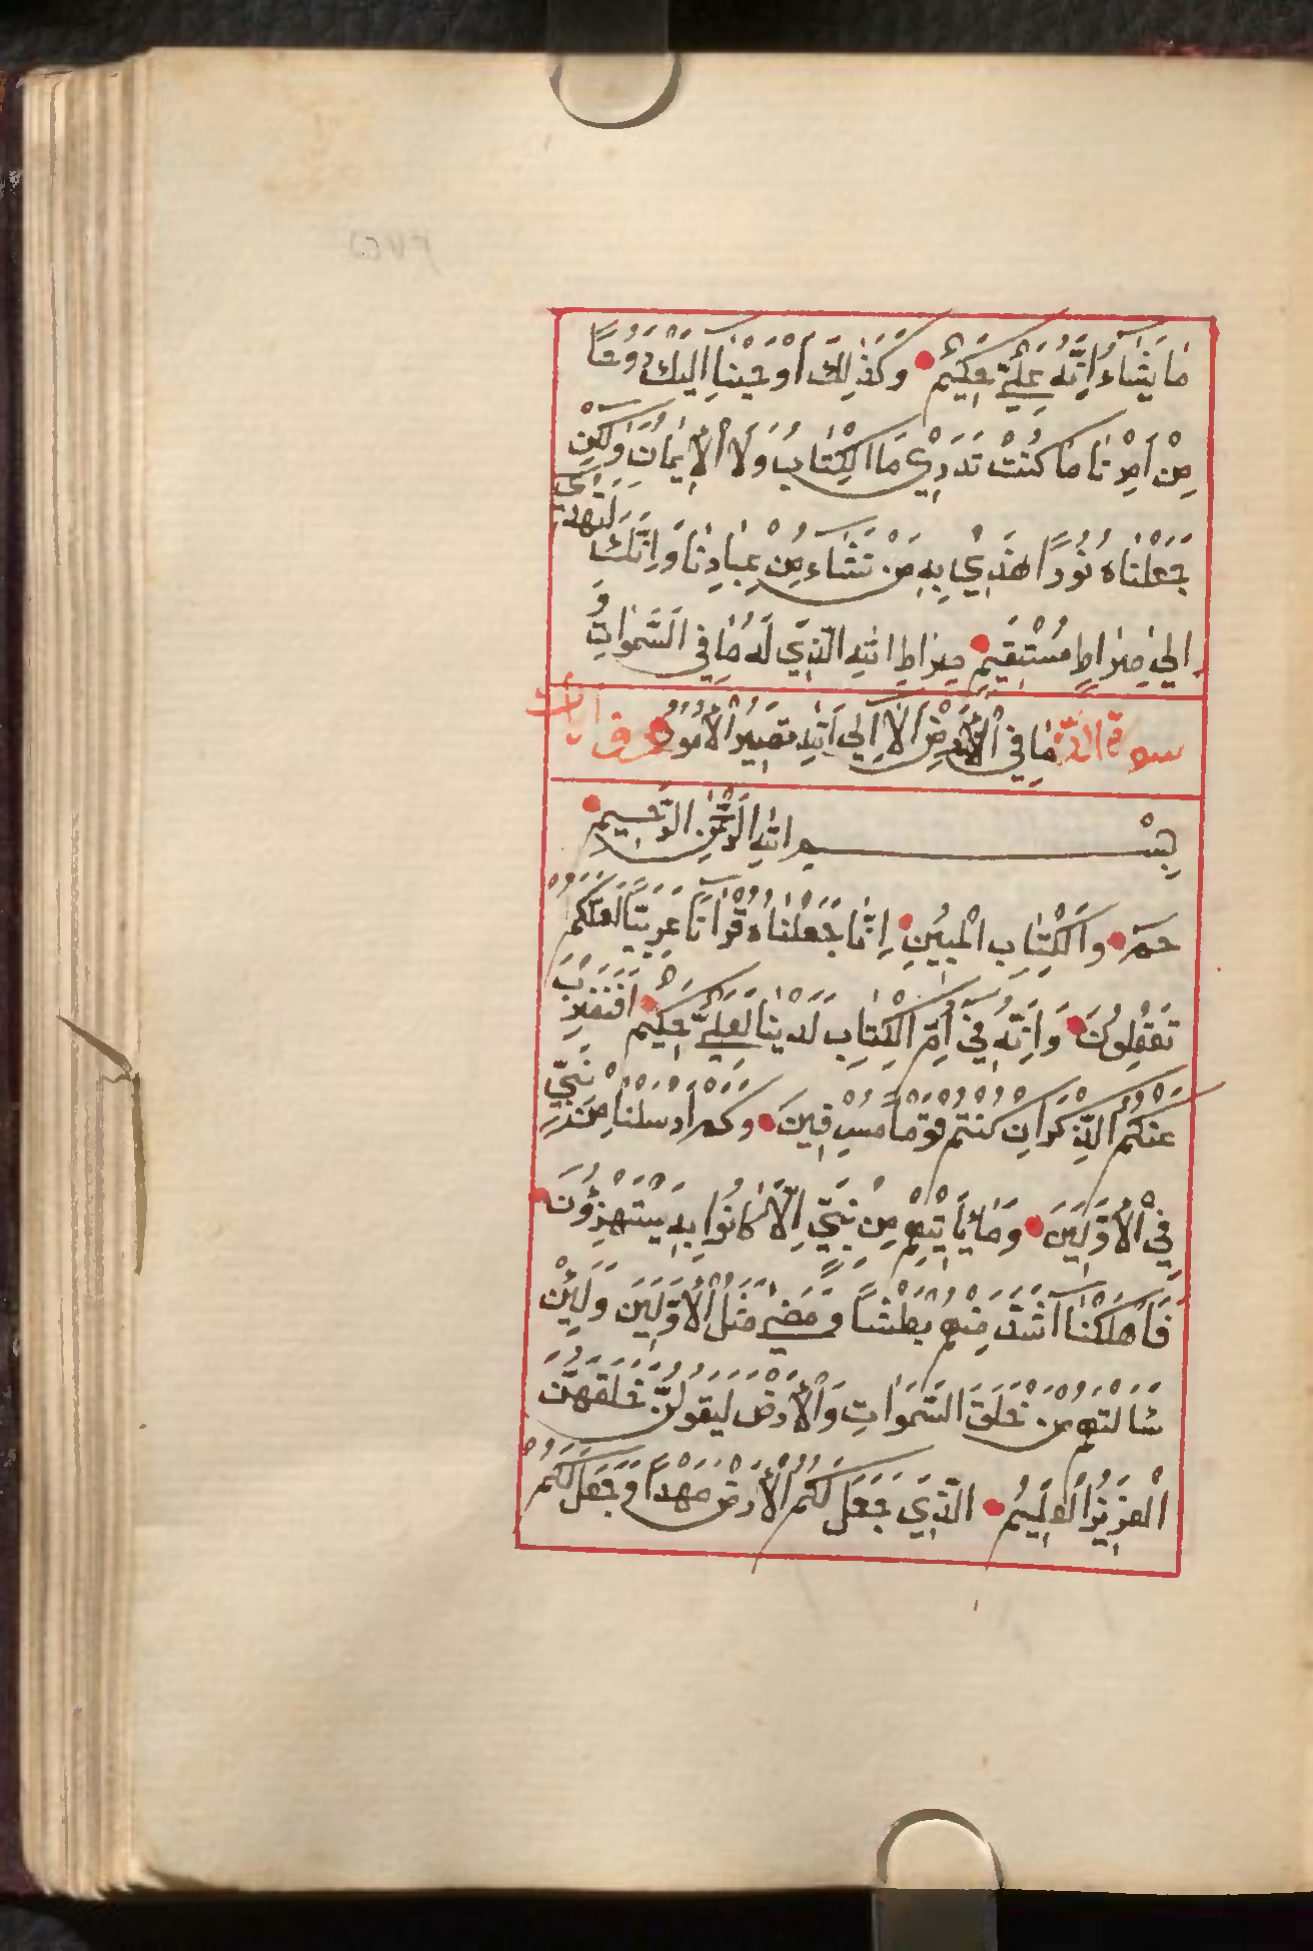 مَا يَشَاءُ اِنَّهُ عَلِيٌّ حَكِيمٌ وَكَذٰلِكَ اَوْحَيْنَا اِلَيْكَ رُوحًا
مِنْ اَمْرِنَا مَا كُنْتَ تَدْرِي مَا الْكِتَابُ وَلَا الْاِيمَانُ وَلٰكِنْ
جَعَلْنَاهُ نُورًا نَهْدِي بِهِ مَنْ نَشَاءُ مِنْ عِبَادِنَا وَاِنَّكَ لَتَهْدِي
اِلٰى صِرَاطٍ مُسْتَقِيمٍ صِرَاطِ اللهِ الَّذِي لَهُ مَا فِي السَّمٰوَاتِ وَ
مَا فِي الْاَرْضِ اَلَا اِلَى اللهِ تَصِيرُ الْاُمُورُ
بِسْمِ اللهِ الرَّحْمٰنِ الرَّحِيمِ
حم وَالْكِتَابِ الْمُبِينِ اِنَّا جَعَلْنَاهُ قُرْاٰنًا عَرَبِيًّا لَعَلَّكُمْ
تَعْقِلُونَ وَاِنَّهُ فِي اُمِّ الْكِتَابِ لَدَيْنَا لَعَلِيٌّ حَكِيمٌ اَفَنَضْرِبُ
عَنْكُمُ الذِّكْرَ اِنْ كُنْتُمْ قَوْمًا مُسْرِفِينَ وَكَمْ اَرْسَلْنَا مِنْ نَبِيٍّ
فِي الْاَوَّلِينَ وَمَا يَأْتِيهِمْ مِنْ نَبِيٍّ اِلَّا كَانُوا بِهِ يَسْتَهْزِؤُنَ
فَاَهْلَكْنَا اَشَدَّ مِنْهُمْ بَطْشًا وَمَضٰى مَثَلُ الْاَوَّلِينَ وَلَئِنْ
سَأَلْتَهُمْ مَنْ خَلَقَ السَّمٰوَاتِ وَالْاَرْضَ لَيَقُولُنَّ خَلَقَهُنَّ
الْعَزِيزُ الْعَلِيمُ الَّذِي جَعَلَ لَكُمُ الْاَرْضَ مَهْدًا وَجَعَلَ لَكُمْ